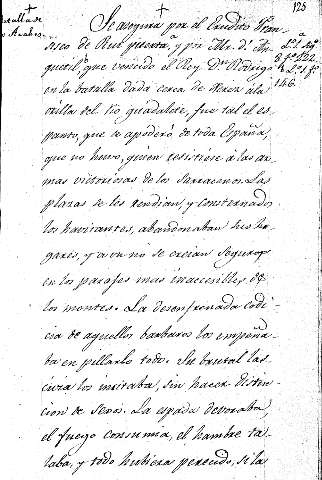 125
Batalla de
los Anales.
Se asegura por el Erudito Fran-
sisco de Ruí puerta, y por Mr. d.
quetil, que vencido el Rey Dn. Rodrigo
en la batalla dada cerca de Xerez a la
orilla del rio guadalete, fue tal el es-
panto, que se apoderó de toda España,
que no huvo, quien resistiese a las ar-
mas victoriosas de los Sarracenos. Las
plazas se les rendian, y consternados
los havitantes, abandonaban sus ho-
gares, y aun no se creian seguros
en los parajes mas inaccesibles de
los montes. La desenfrenada codi-
cia de aquellos barbaros los empeña-
ba en pillarlo todo. Su brutal las-
civia los incitaba, sin hacer distin-
cion de Sexos. La espada devoraba,
el fuego consumia, el hambre ta-
laba, y todo hubiera perecido, si las